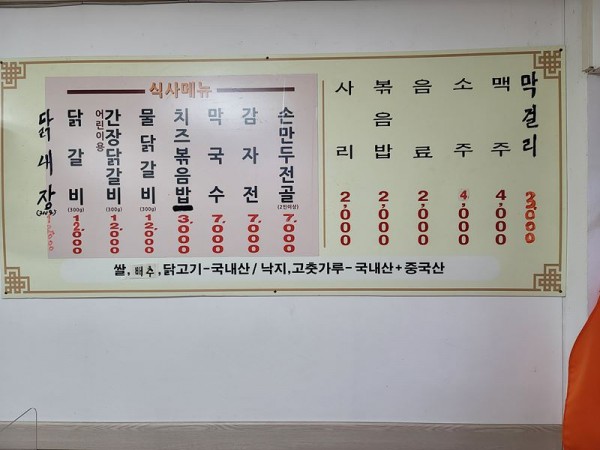 식사메뉴
닭내장
닭갈비 (300g) 12,000
어린이용 간장닭갈비 (300g) 12,000
물닭갈비 (300g) 12,000
치즈볶음밥 3,000
막국수 7,000
감자전 7,000
손만두전골 (2인이상) 7,000
사리 2,000
볶음밥 2,000
음료 2,000
소주 4,000
맥주 4,000
막걸리
쌀, 배추, 닭고기-국내산/ 낙지,고춧가루- 국내산+중국산